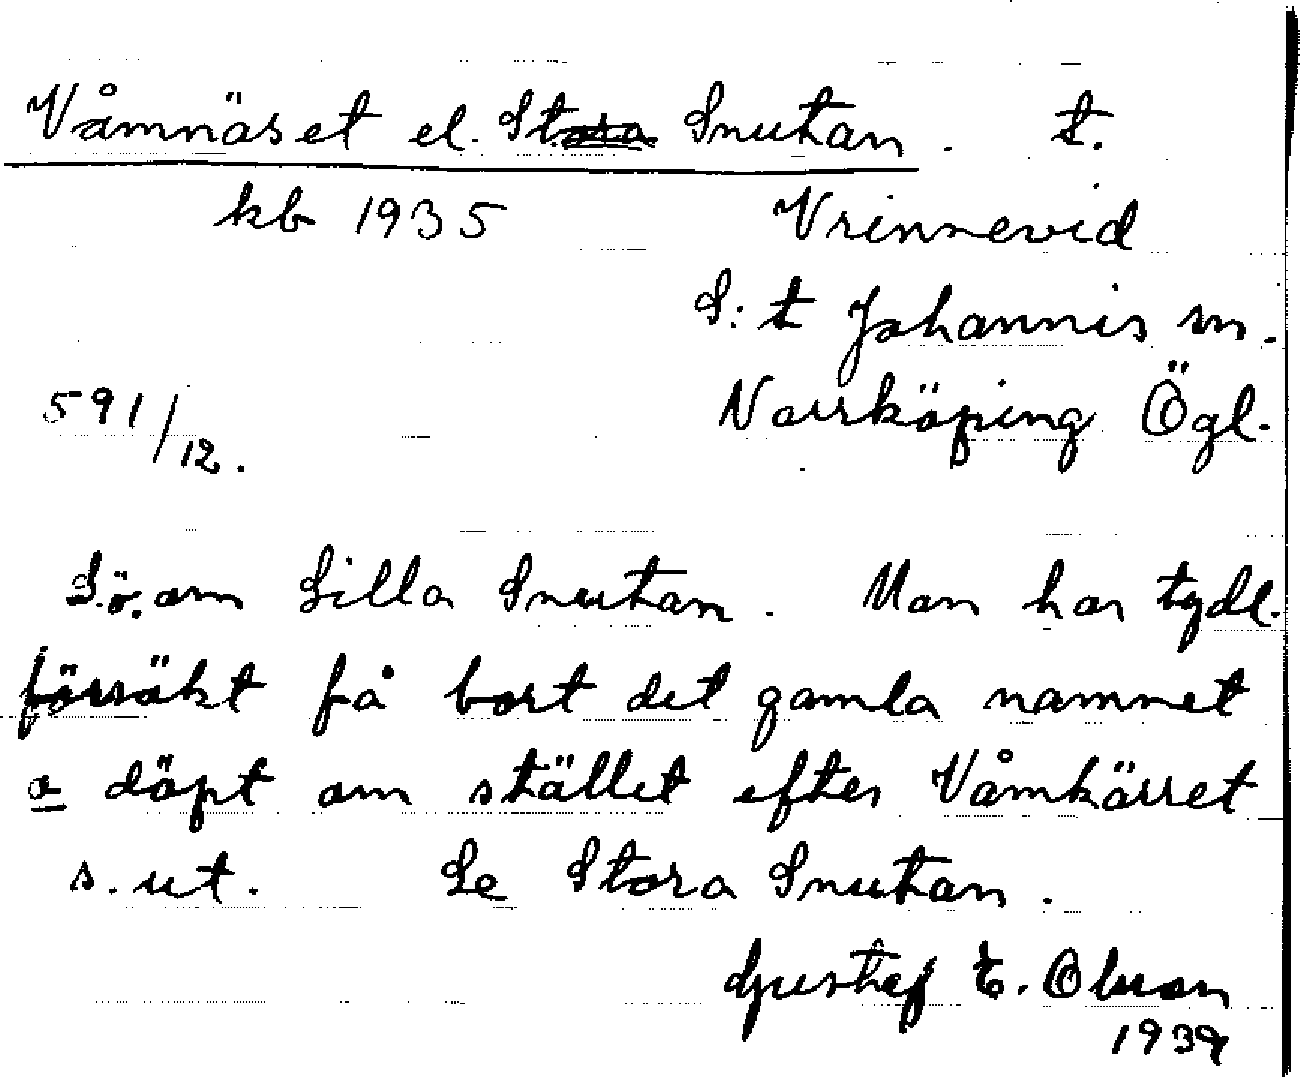 Våmnäset el. Stora Snuhan. t.
kb 1935 Vrinnevid
S:t Johannis sn.
591/12. Norrköping Ögl.
S.ö. om Lilla Snuhan. Man har tydl.
försökt få bort det gamla namnet
o döpt om stället efter Våmkärret
s. ut. Se Stora Snuhan.
Gustaf E. Olsson
1939